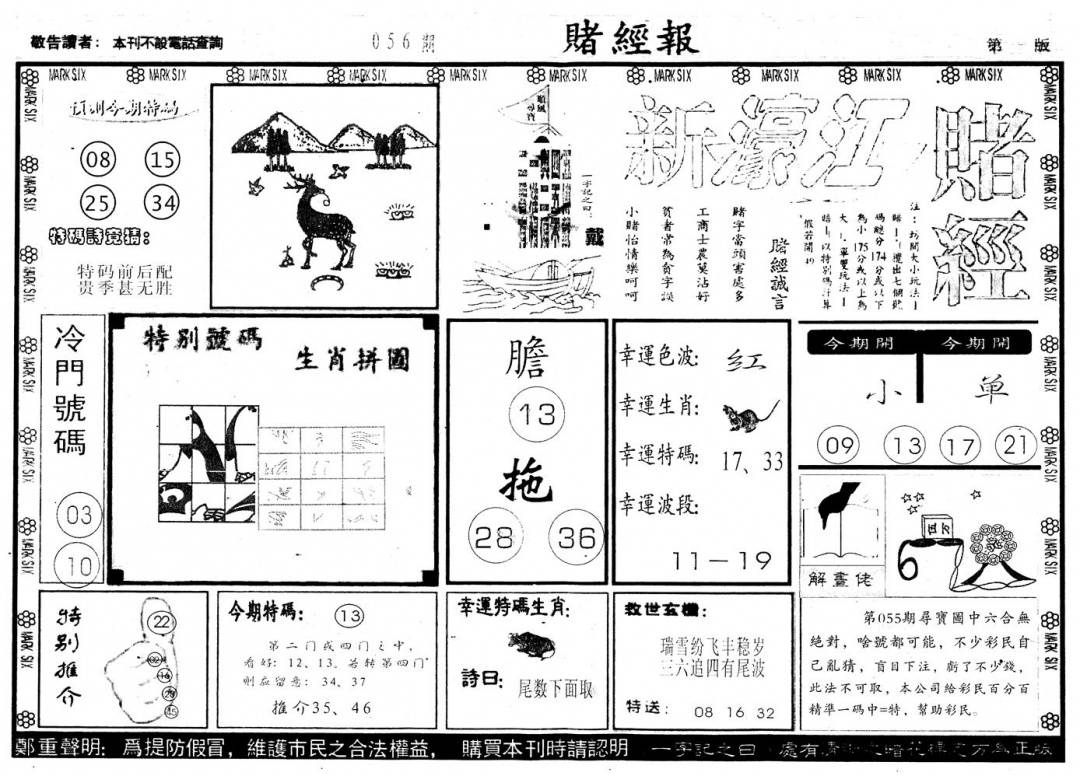 敬告讀者： 本刊不設電話查詢
056期
賭經報
第一版
MARK SIX MARK SIX MARK SIX MARK SIX MARK SIX MARK SIX MARK SIX MARK SIX MARK SIX MARK SIX
預測今期特碼
08 15
25 34
特碼詩竞猜：
特码前后配
贵季甚无胜
順風
尋寶
一字記之曰：
戴
新濠江
賭經
賭經誠言
賭字當頭害處多
工商士農莫沾好
貧者常為貪字誤
小賭怡情樂呵呵
冷門號碼
03
10
特别號碼
生肖拼圖
膽
13
拖
28 36
幸運色波: 红
幸運生肖:
幸運特碼: 17、33
幸運波段:
11－19
今期開 今期開
小 单
09 13 17 21
解畫佬
特别推介
22
今期特碼: 13
第二门或四门之中，
看好：12、13，若转第四门
则应留意：34、37
推介35、46
幸運特碼生肖:
詩曰: 尾数下面取
救世玄機:
瑞雪纷飞丰稳岁
三六追四有尾波
特送: 08 16 32
第055期尋寶圖中六合無
絶對，啥號都可能，不少彩民自
己亂猜，盲目下注，虧了不少錢，
此法不可取，本公司給彩民百分百
精準一码中=特，幫助彩民。
鄭重聲明：爲提防假冒，維護市民之合法權益， 購買本刊時請認明 一字記之曰